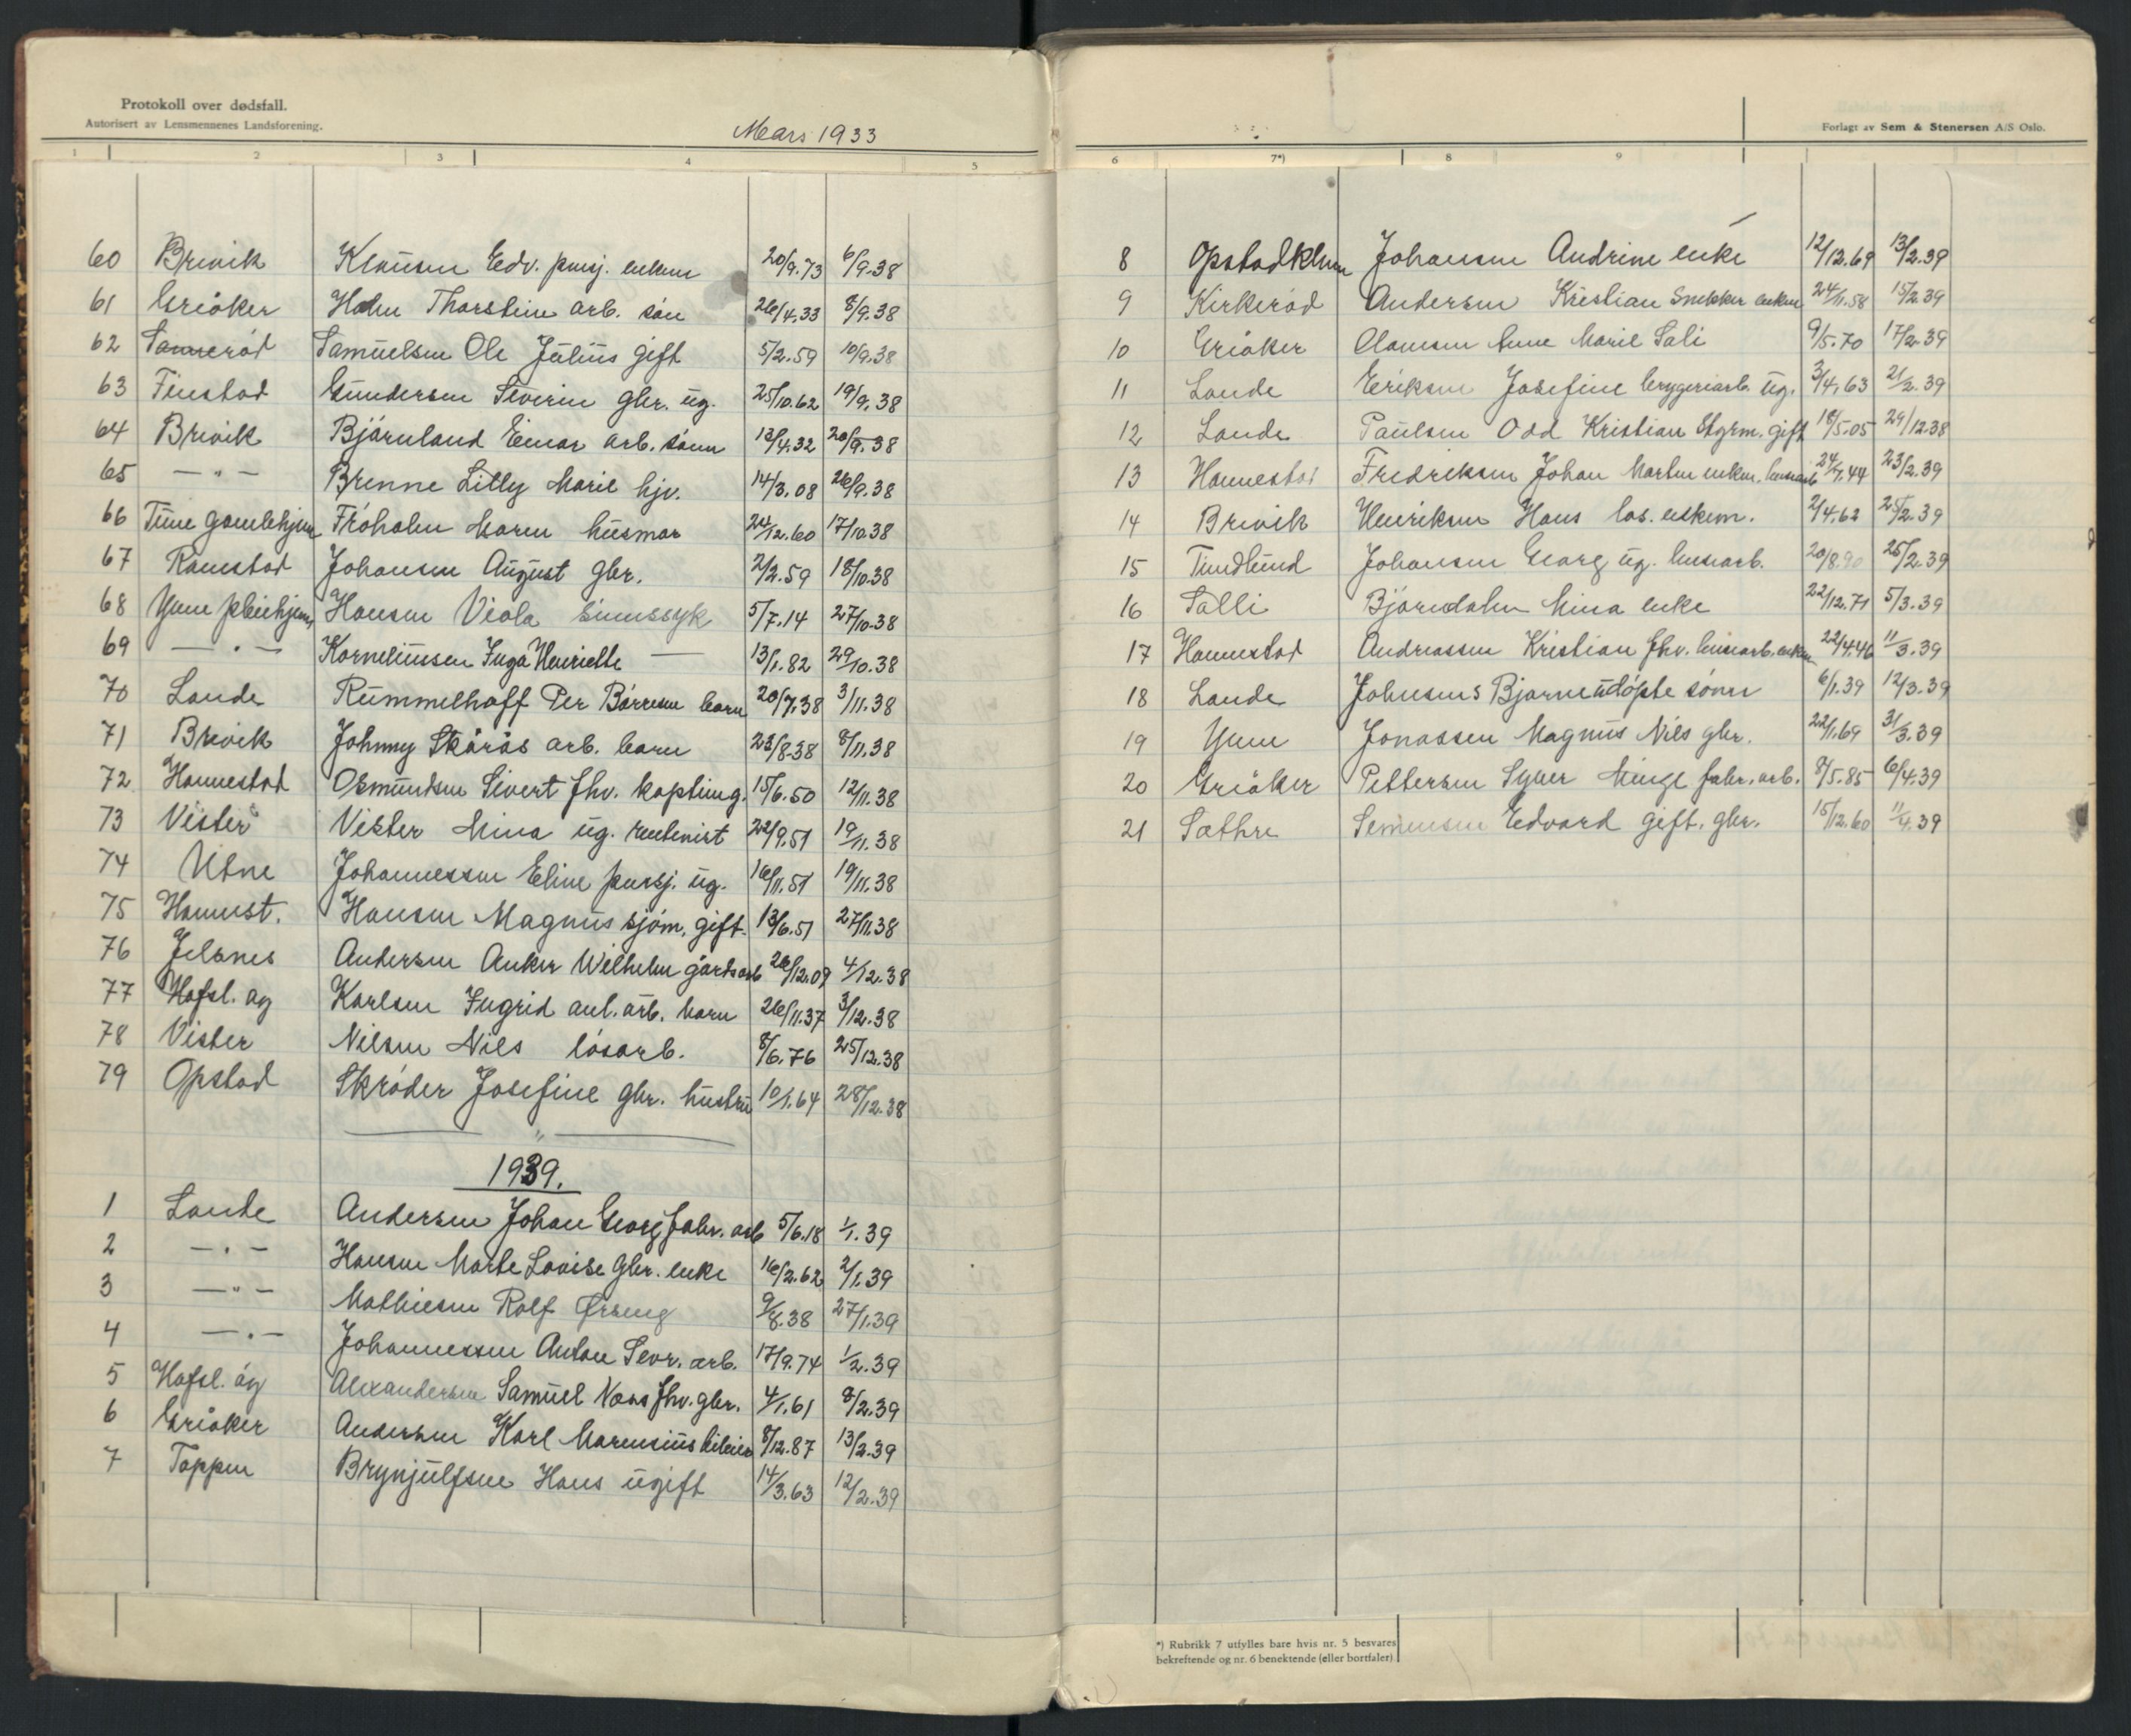 Protokoll over dødsfall.
Autorisert av Lensmennenes Landsforening.
Mars 1933
1 2 3 4 5
60 Brevik Klausen Edv. pensj. enkem 20/9.73 6/9.38
61 Greåker Holm Thorstein arb. søn 26/4.33 8/9.38
62 Tannerød Samuelsen Ole Julius gift 5/2.59 10/9.38
63 Finstad Gundersen Severin gbr. ug. 25/10.62 19/9.38
64 Brevik Bjørnland Einar arb. sønn 13/4.32 20/9.38
65 — " — Brenne Lilly Marie hjv. 14/3.08 26/9.38
66 Tune gamlehjem Frøholm Maren husmor 24/12.60 17/10.38
67 Råmstad Johansen August gbr. 2/2.59 18/10.38
68 Yven pleiehjem Hansen Viola sinnssyk 5/7.14 27/10.38
69 — " — Korneliussen Inga Henriette — 13/1.82 29/10.38
70 Lande Rummelhoff Per Børresen barn 20/7.38 3/11.38
71 Brevik Johnny Skårås arb. barn 23/8.38 8/11.38
72 Hannestad Osmundsen Sivert fhv. 15/6.50 12/11.38
73 Vister Vister Mina ug. rentenist 22/9.51 19/11.38
74 Utne Johannessen Eline pensj. ug. 16/11.51 19/11.38
75 Hannest. Hansen Magnus sjøm. gift. 13/6.51 27/11.38
76 Jelsnes Andersen Anker Wilhelm gårdsarb 26/12.09 4/12.38
77 Hafsl. og Karlsen Ingrid anl. arb. barn 26/11.37 3/12.38
78 Vister Nilsen Nils løsarb. 8/6.76 25/12.38
79 Opstad Skrøder Josefine gbr. hustru 10/1.64 28/12.38
— " —
1939.
1 Lande Andersen Johan Georg fabr. arb 5/6.18 1/1.39
2 — " — Hansen Marte Lovise gbr. enke 16/2.62 2/1.39
3 — " — Mathiesen Rolf 9/8.38 27/1.39
4 — " — Johannessen Anton Sevr. arb. 17/9.74 1/2.39
5 Hafsl. og Alexandersen Samuel Næss fhv. gbr. 4/1.61 8/2.39
6 Greåker Andersen Karl Marensius 8/12.87 13/2.39
7 Toppen Brynjulfsen Hans ugift 14/3.63 12/2.39
Forlagt av Sem & Stenersen A/S Oslo.
6 7*) 8 9
8 Opstadklun Johansen Andrine enke 12/12.69 13/2.39
9 Kirkerød Andersen Kristian Snekker enkem 24/11.58 15/2.39
10 Greåker Olaussen Anne Marie Sali 9/5.70 17/2.39
11 Lande Eriksen Josefine bryggeriarb. ug. 3/4.63 21/2.39
12 Lande Paulsen Odd Kristian Styrm. gift 18/5.05 29/12.38
13 Hannestad Fredriksen Johan Morten enkem. 24/7.44 23/2.39
14 Brevik Henriksen Hans løs. enkem. 2/4.62 25/2.39
15 Tindlund Johansen Georg ug. 20/8.90 25/2.39
16 Salli Bjørndalen Mina enke 22/12.71 5/3.39
17 Hannestad Andreassen Kristian fhv. enkem 22/4.46 11/3.39
18 Lande Johnsens Bjarne udøpte sønn 6/1.39 12/3.39
19 Yven Jonassen Magnus Nils gbr. 22/1.69 31/3.39
20 Greåker Pettersen Syver Minge fabr. arb. 8/5.85 6/4.39
21 Sæthre Semensen Edvard gift. gbr. 15/12.60 11/4.39
*) Rubrikk 7 utfylles bare hvis nr. 5 besvares
bekreftende og nr. 6 benektende (eller bortfaler)